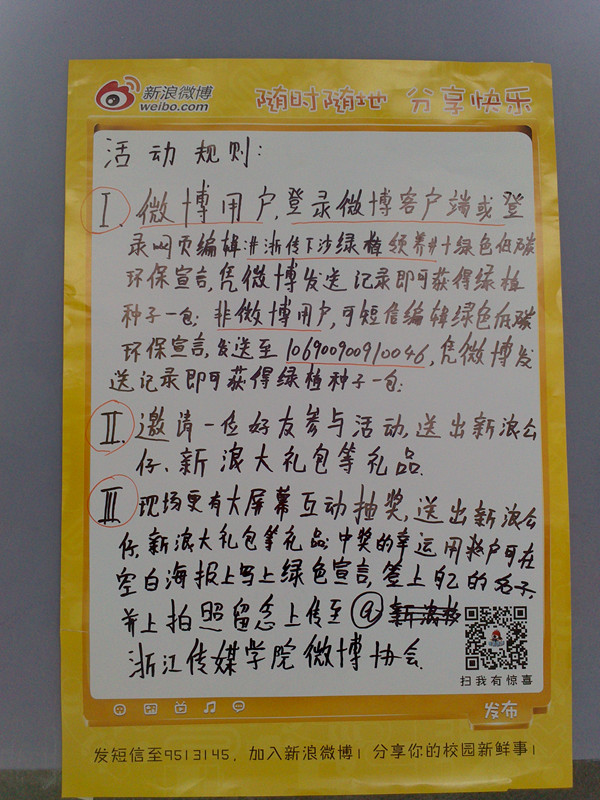 新浪微博
weibo.com
随时随地 分享快乐
活动规则:
I. 微博用户,登录微博客户端或登
录网页编辑#浙传下沙绿植领养#+绿色低碳
环保宣言,凭微博发送记录即可获得绿植
种子一包;非微博用户,可短信编辑绿色低碳
环保宣言,发送至106900900910046,凭微博发
送记录即可获得绿植种子一包;
II. 邀请一位好友参与活动,送出新浪公
仔、新浪大礼包等礼品.
III 现场更有大屏幕互动抽奖,送出新浪公
仔、新浪大礼包等礼品.中奖的幸运用户可在
空白海报上写上绿色宣言,签上自己的名字,
并上拍照留念上传至@
浙江传媒学院微博协会.
扫我有惊喜
发布
发短信至9513145,加入新浪微博!分享你的校园新鲜事!